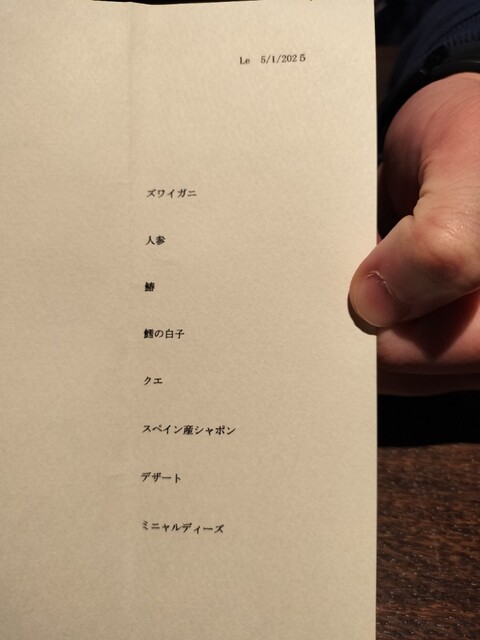 Le 5/1/2025
ズワイガニ
人参
鰆
鱈の白子
クエ
スペイン産シャポン
デザート
ミニャルディーズ